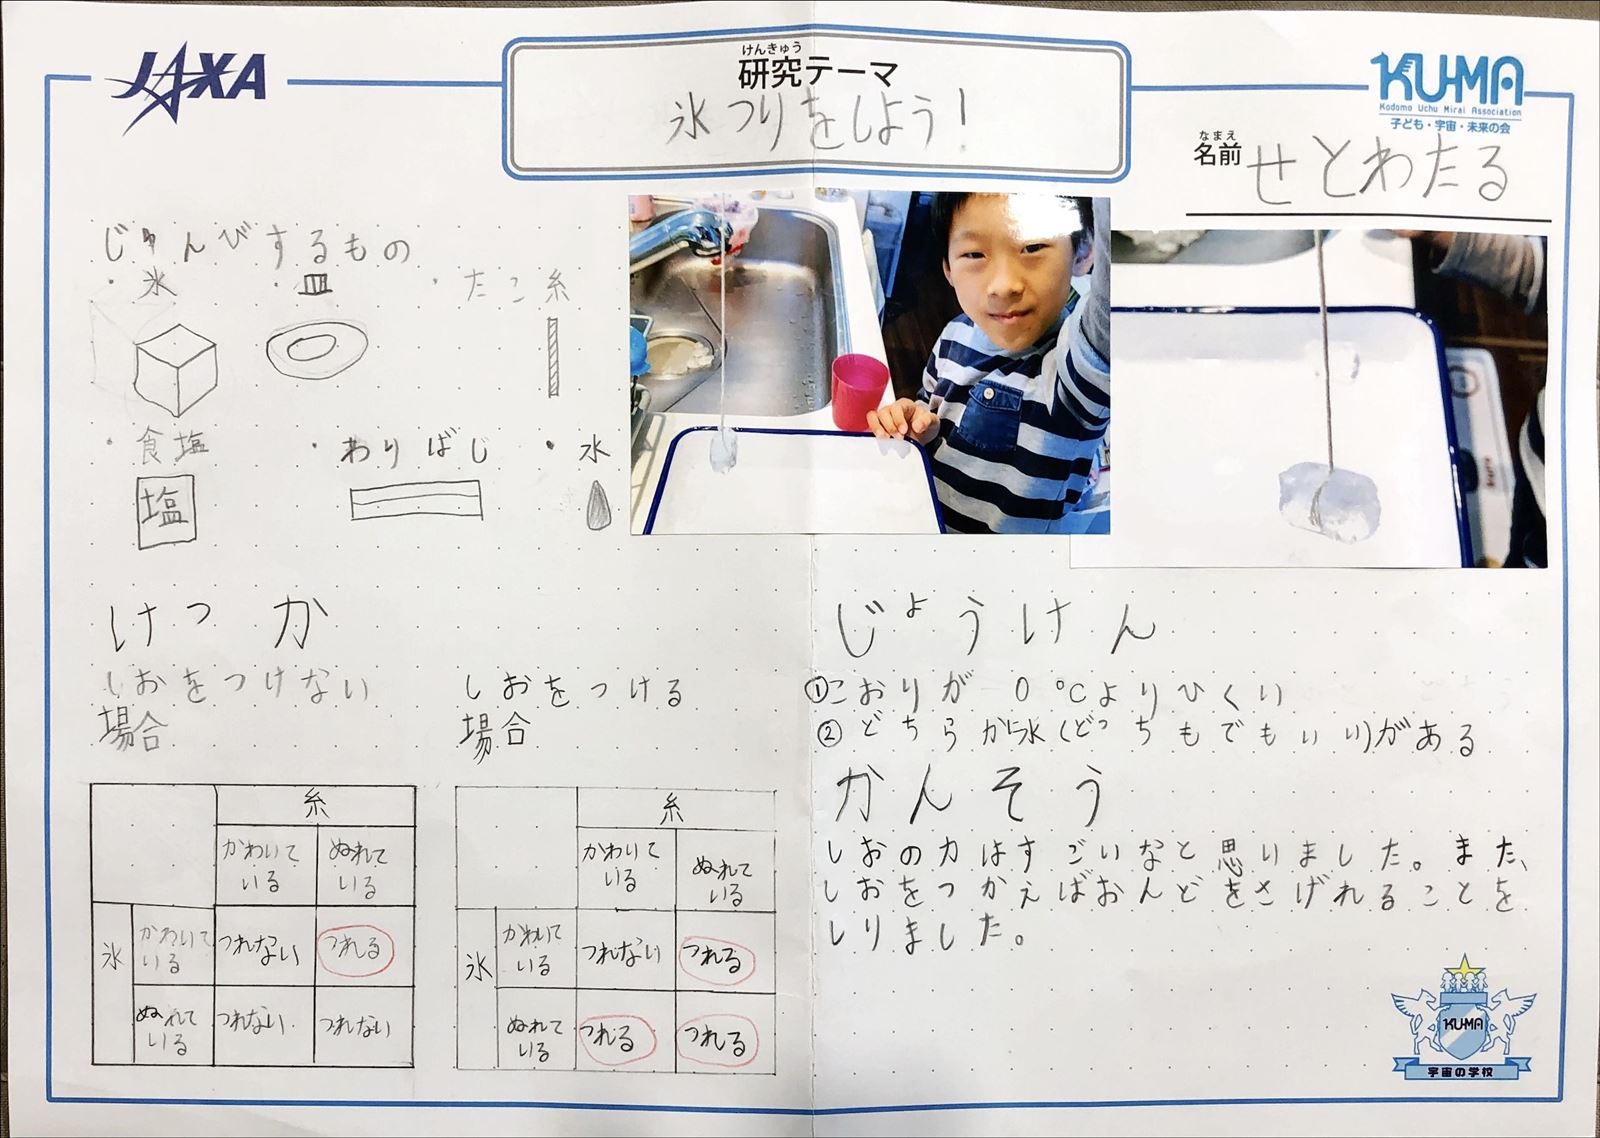 JAXA
けんきゅう
研究テーマ
氷つりをしよう!
KU-MA
Kodomo Uchu Mirai Association
子ども・宇宙・未来の会
なまえ
名前 せとわたる
じゅんびするもの
・氷 ・皿 ・たこ糸
・食塩 ・わりばし ・水
塩
けっか
しおをつけない
場合
糸
かわいて
いる
ぬれて
いる
氷
かわいて
いる
つれない
つれる
ぬれて
いる
つれない
つれない
しおをつける
場合
糸
かわいて
いる
ぬれて
いる
氷
かわいて
いる
つれない
つれる
ぬれて
いる
つれる
つれる
じょうけん
①こおりが 0℃よりひくい
②どちらかに水(どっちもでもいい)がある
かんそう
しおの力はすごいなと思りました。また、
しおをつかえばおんどをさげれることを
しりました。
KUMA
宇宙の学校